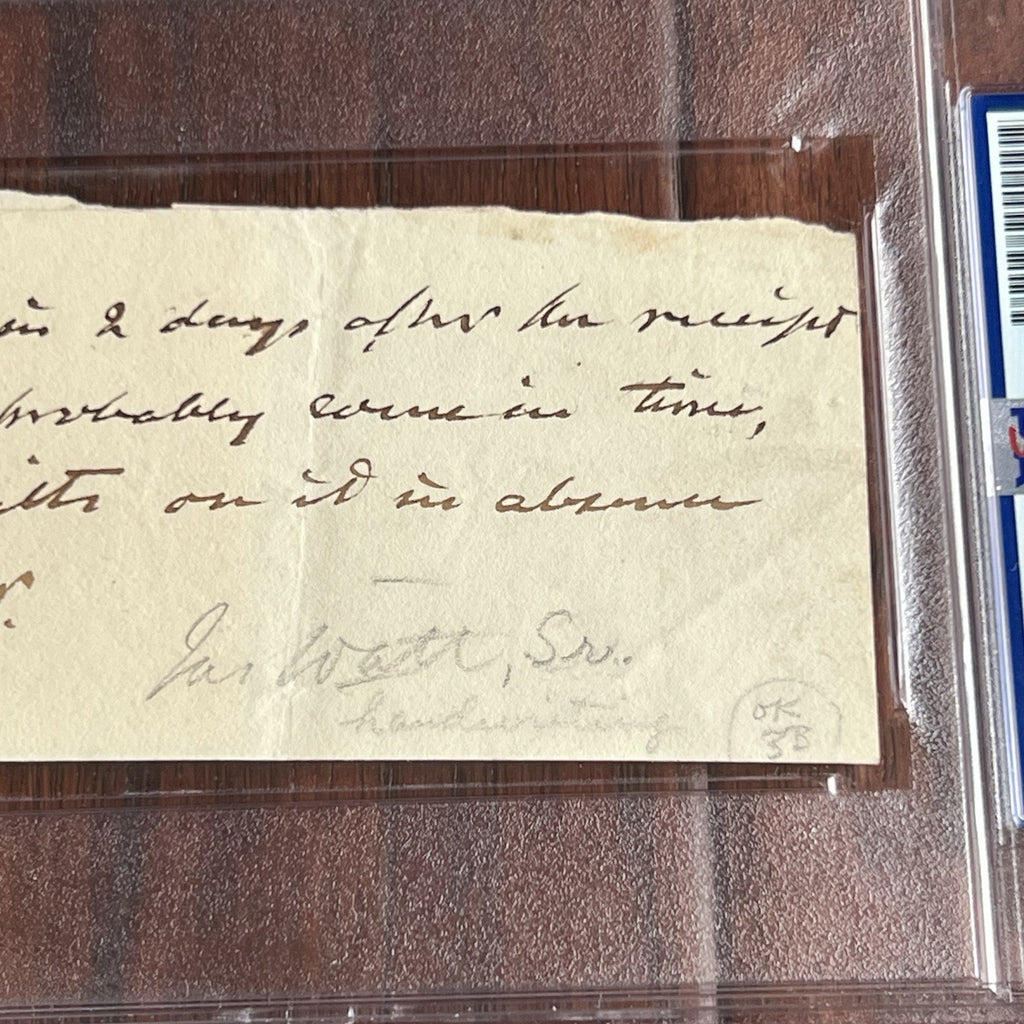 in 2 days after the receipt
probably come in time,
on it in absence
Jas Watt, Sr.
handwriting
OK